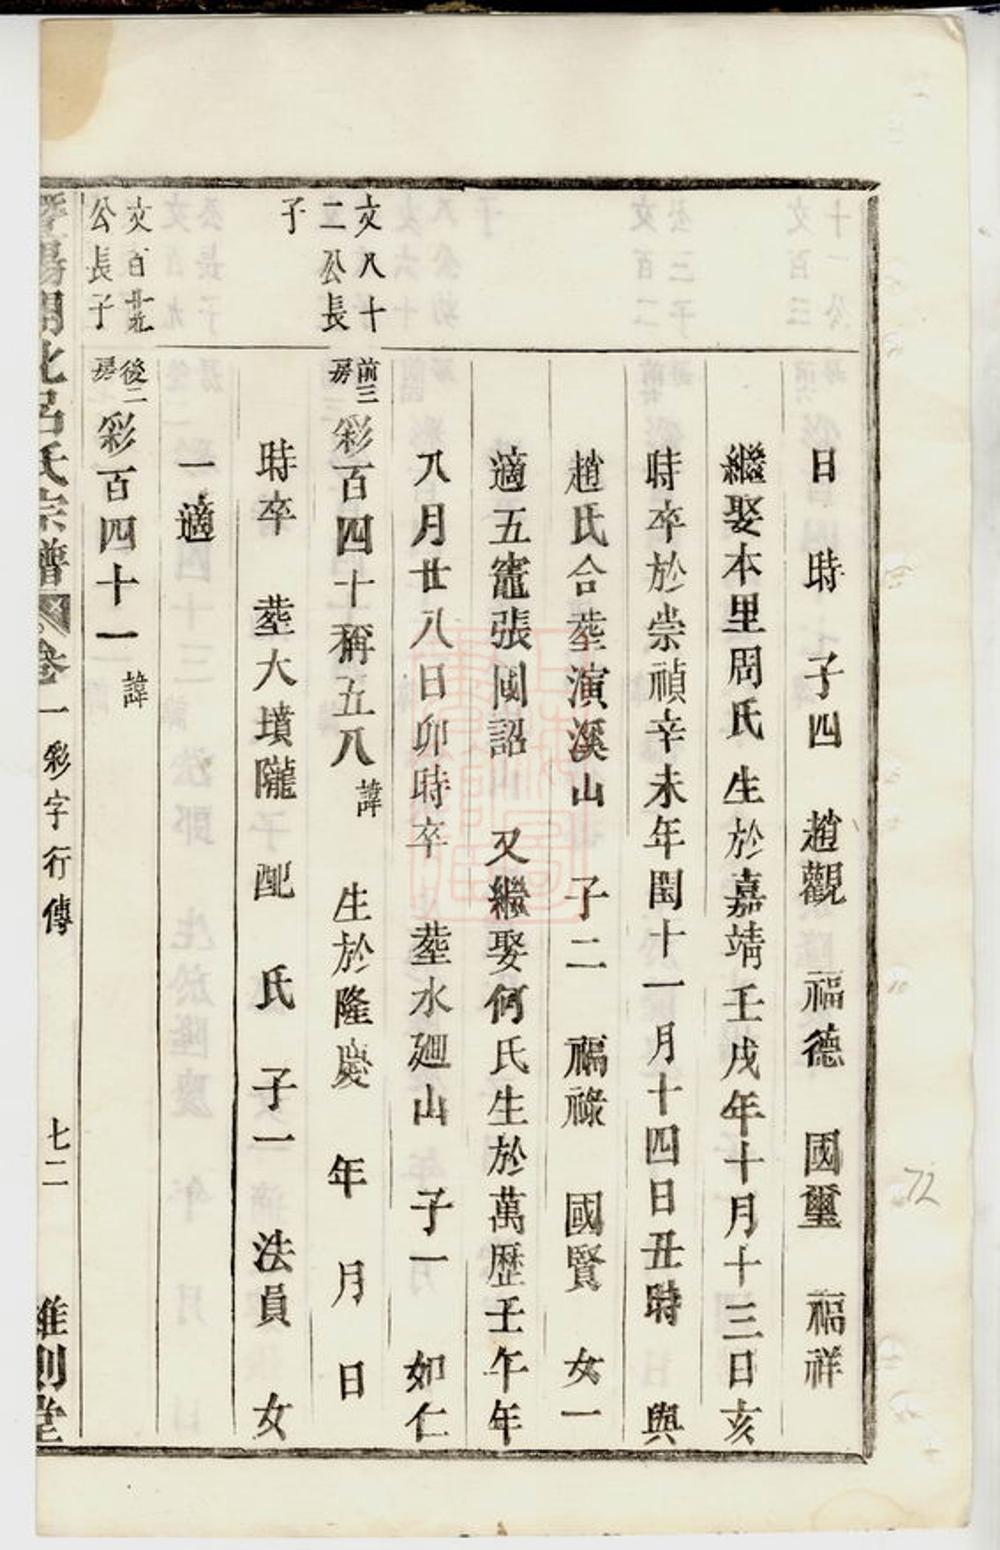 日　時　子四　趙觀　福德　國璽　福祥
繼娶本里周氏生於嘉靖壬戌年十月十三日亥
時卒於崇禎辛未年閏十一月十四日丑時　與
趙氏合塟演溪山　子二　福祿　國賢　女一
適五竈張國詔　又繼娶何氏生於萬歷壬午年
八月廿八日卯時卒　塟水廻山　子一　如仁
文八十
二公長
子
前三
房
彩百四十稱五八諱　生於隆慶　年　月　日
時卒　塟大墳隴　配　氏　子一　法員　女
一適
文百廿九
公長子
後二
房
彩百四十一諱
暨陽開化呂氏宗譜　卷一　彩字行傳　七二　維則堂
72